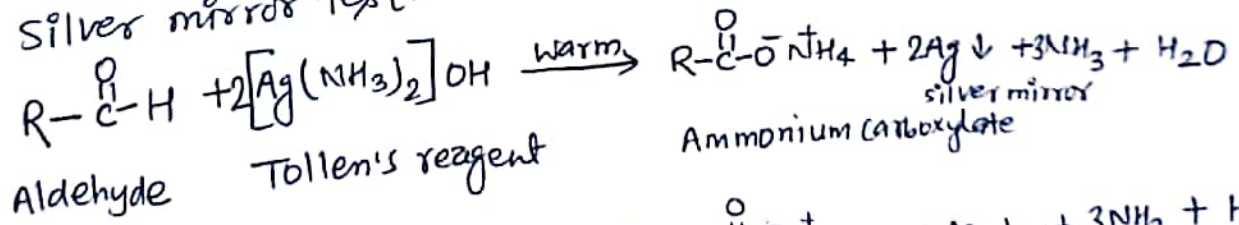 Silver mirror Test
R-C(=O)-H +2[Ag(NH3)2]OH warm→ R-C(=O)-O⁻N⁺H4 + 2Ag↓ +3NH3 + H2O
silver mirror
Aldehyde Tollen's reagent Ammonium carboxylate
O + 3NH3 + H